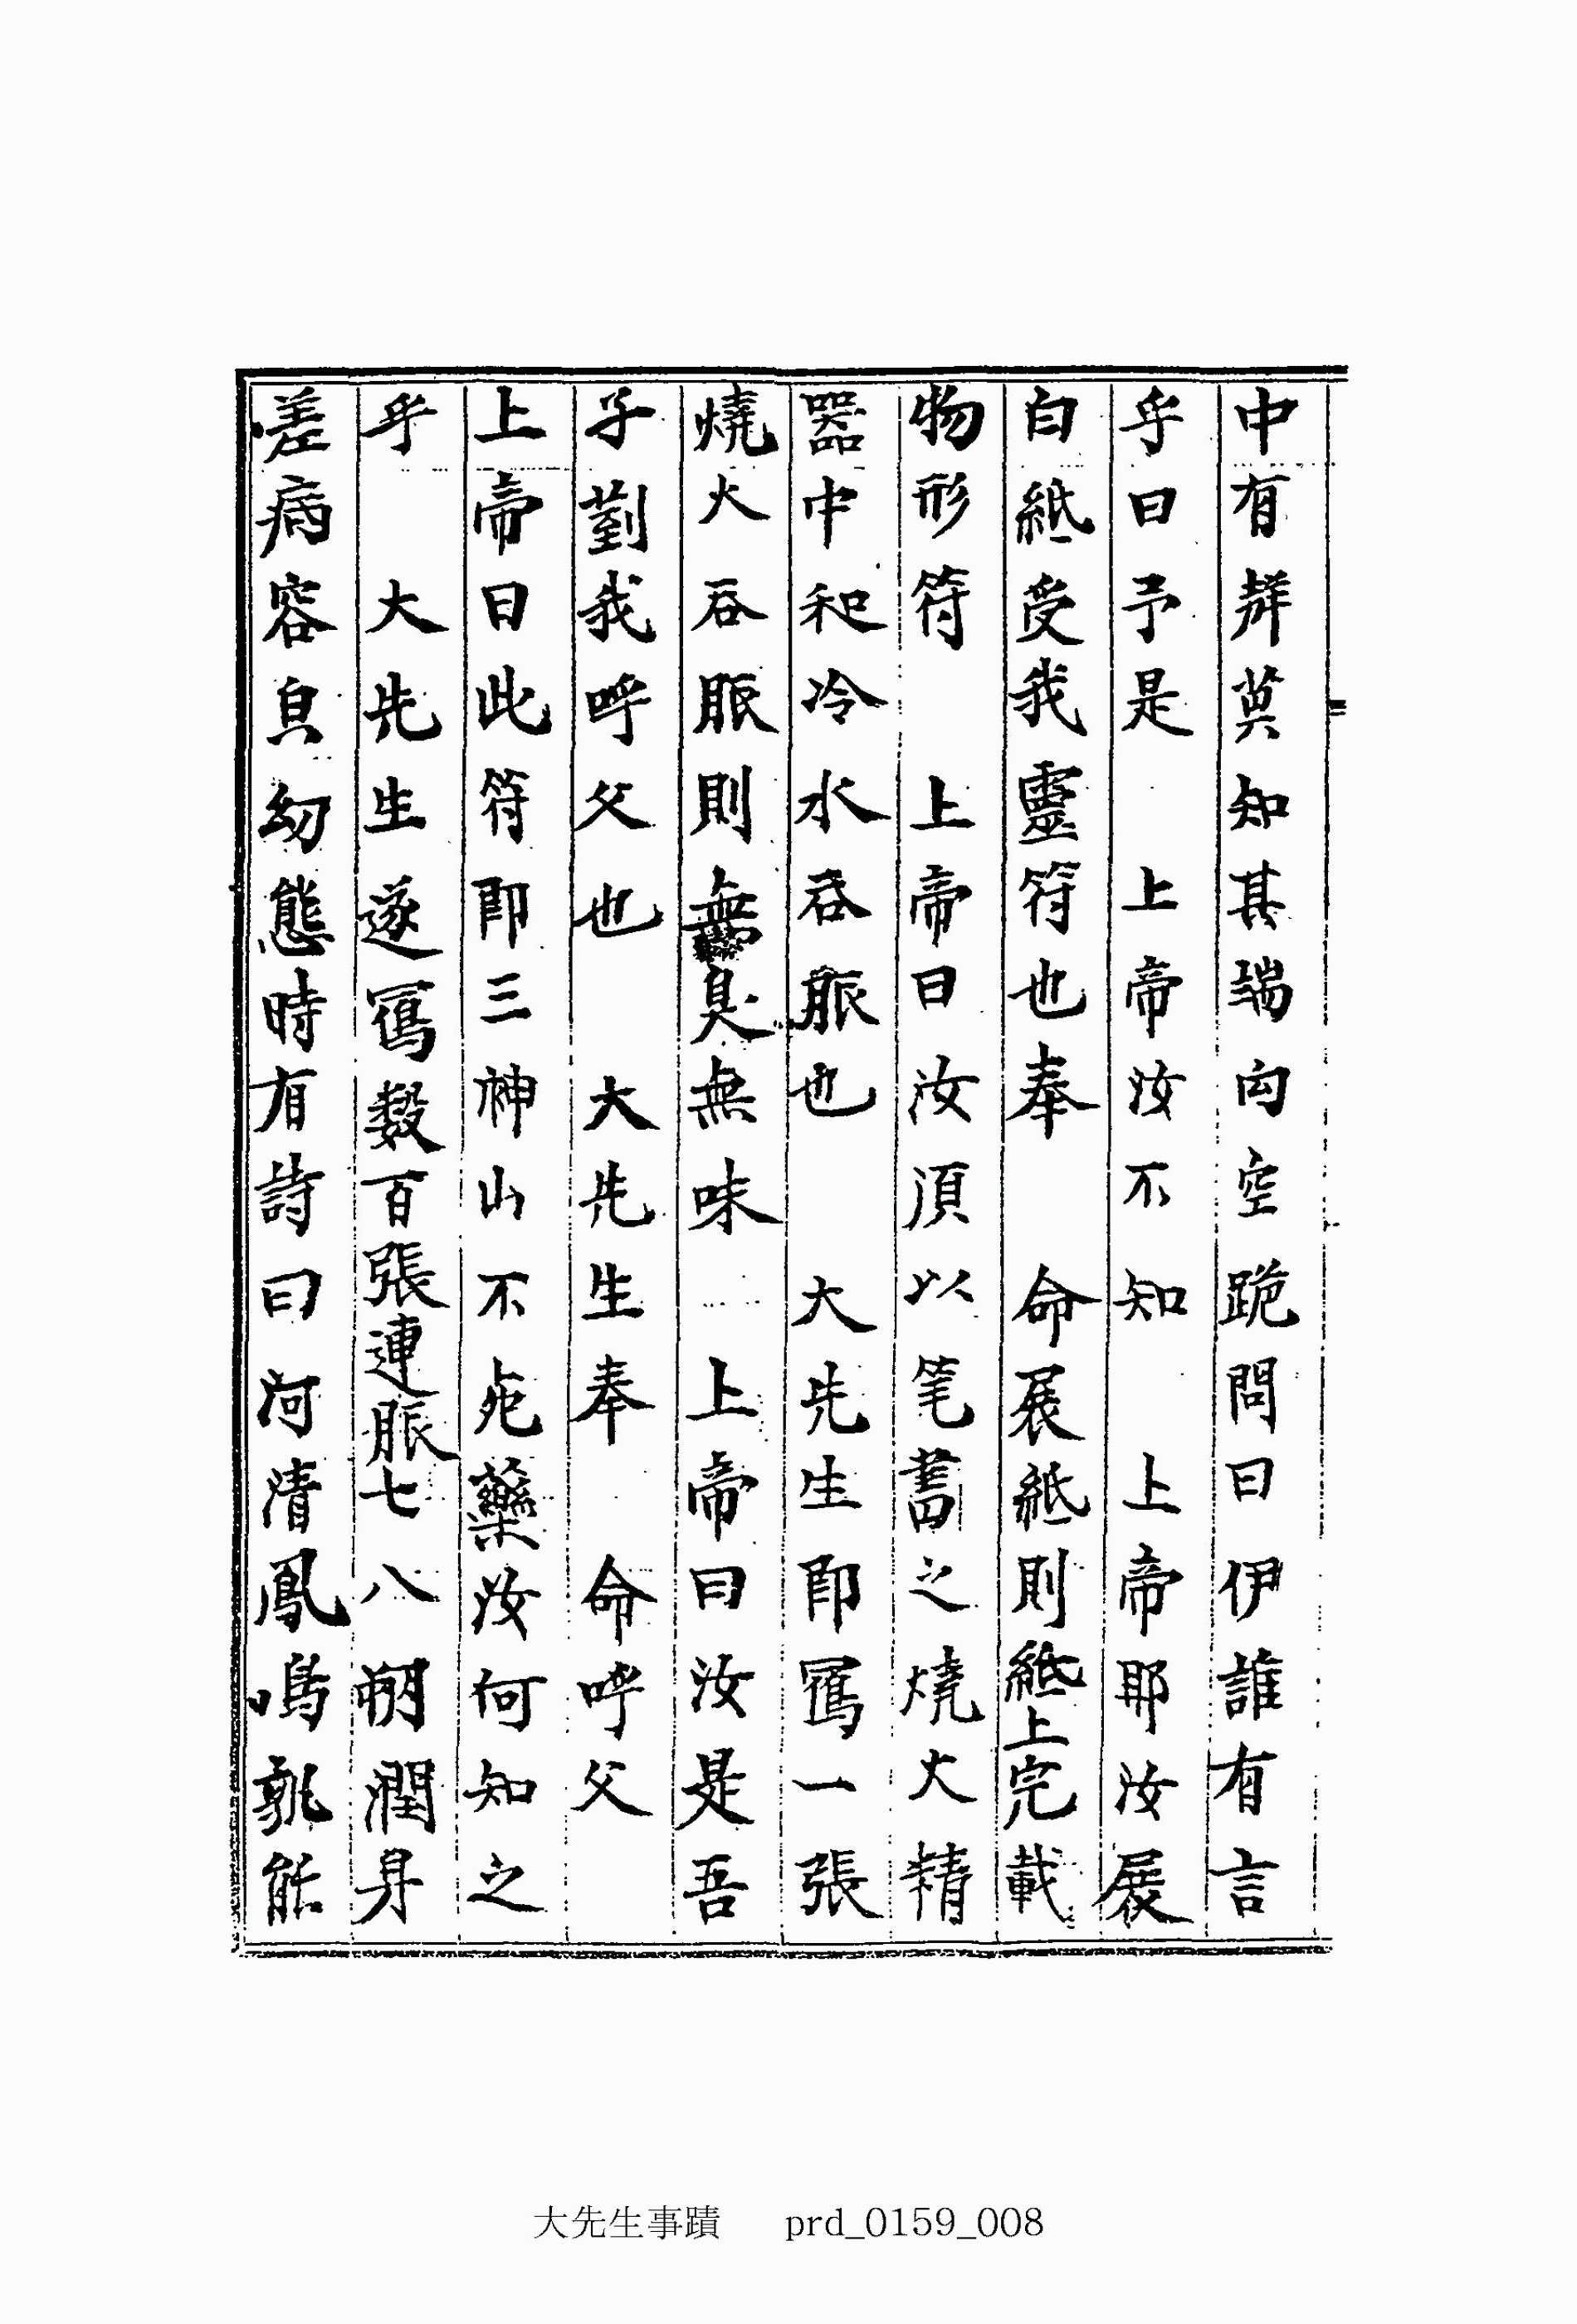 中有聲莫知其端向空跪問曰伊誰有言
乎曰予是　上帝汝不知　上帝耶汝展
白紙受我靈符也奉　命展紙則紙上完載
物形符　上帝曰汝須以笔書之燒火精
器中和冷水吞服也　大先生卽寫一張
燒火吞服則無臭無味　上帝曰汝是吾
子剳我呼父也　大先生奉　命呼父
上帝曰此符卽三神山不死藥汝何知之
乎　大先生遂寫數百張連服七八朔潤身
差病容皃幻態時有詩曰河清鳳鳴孰能
大先生事蹟　prd_0159_008